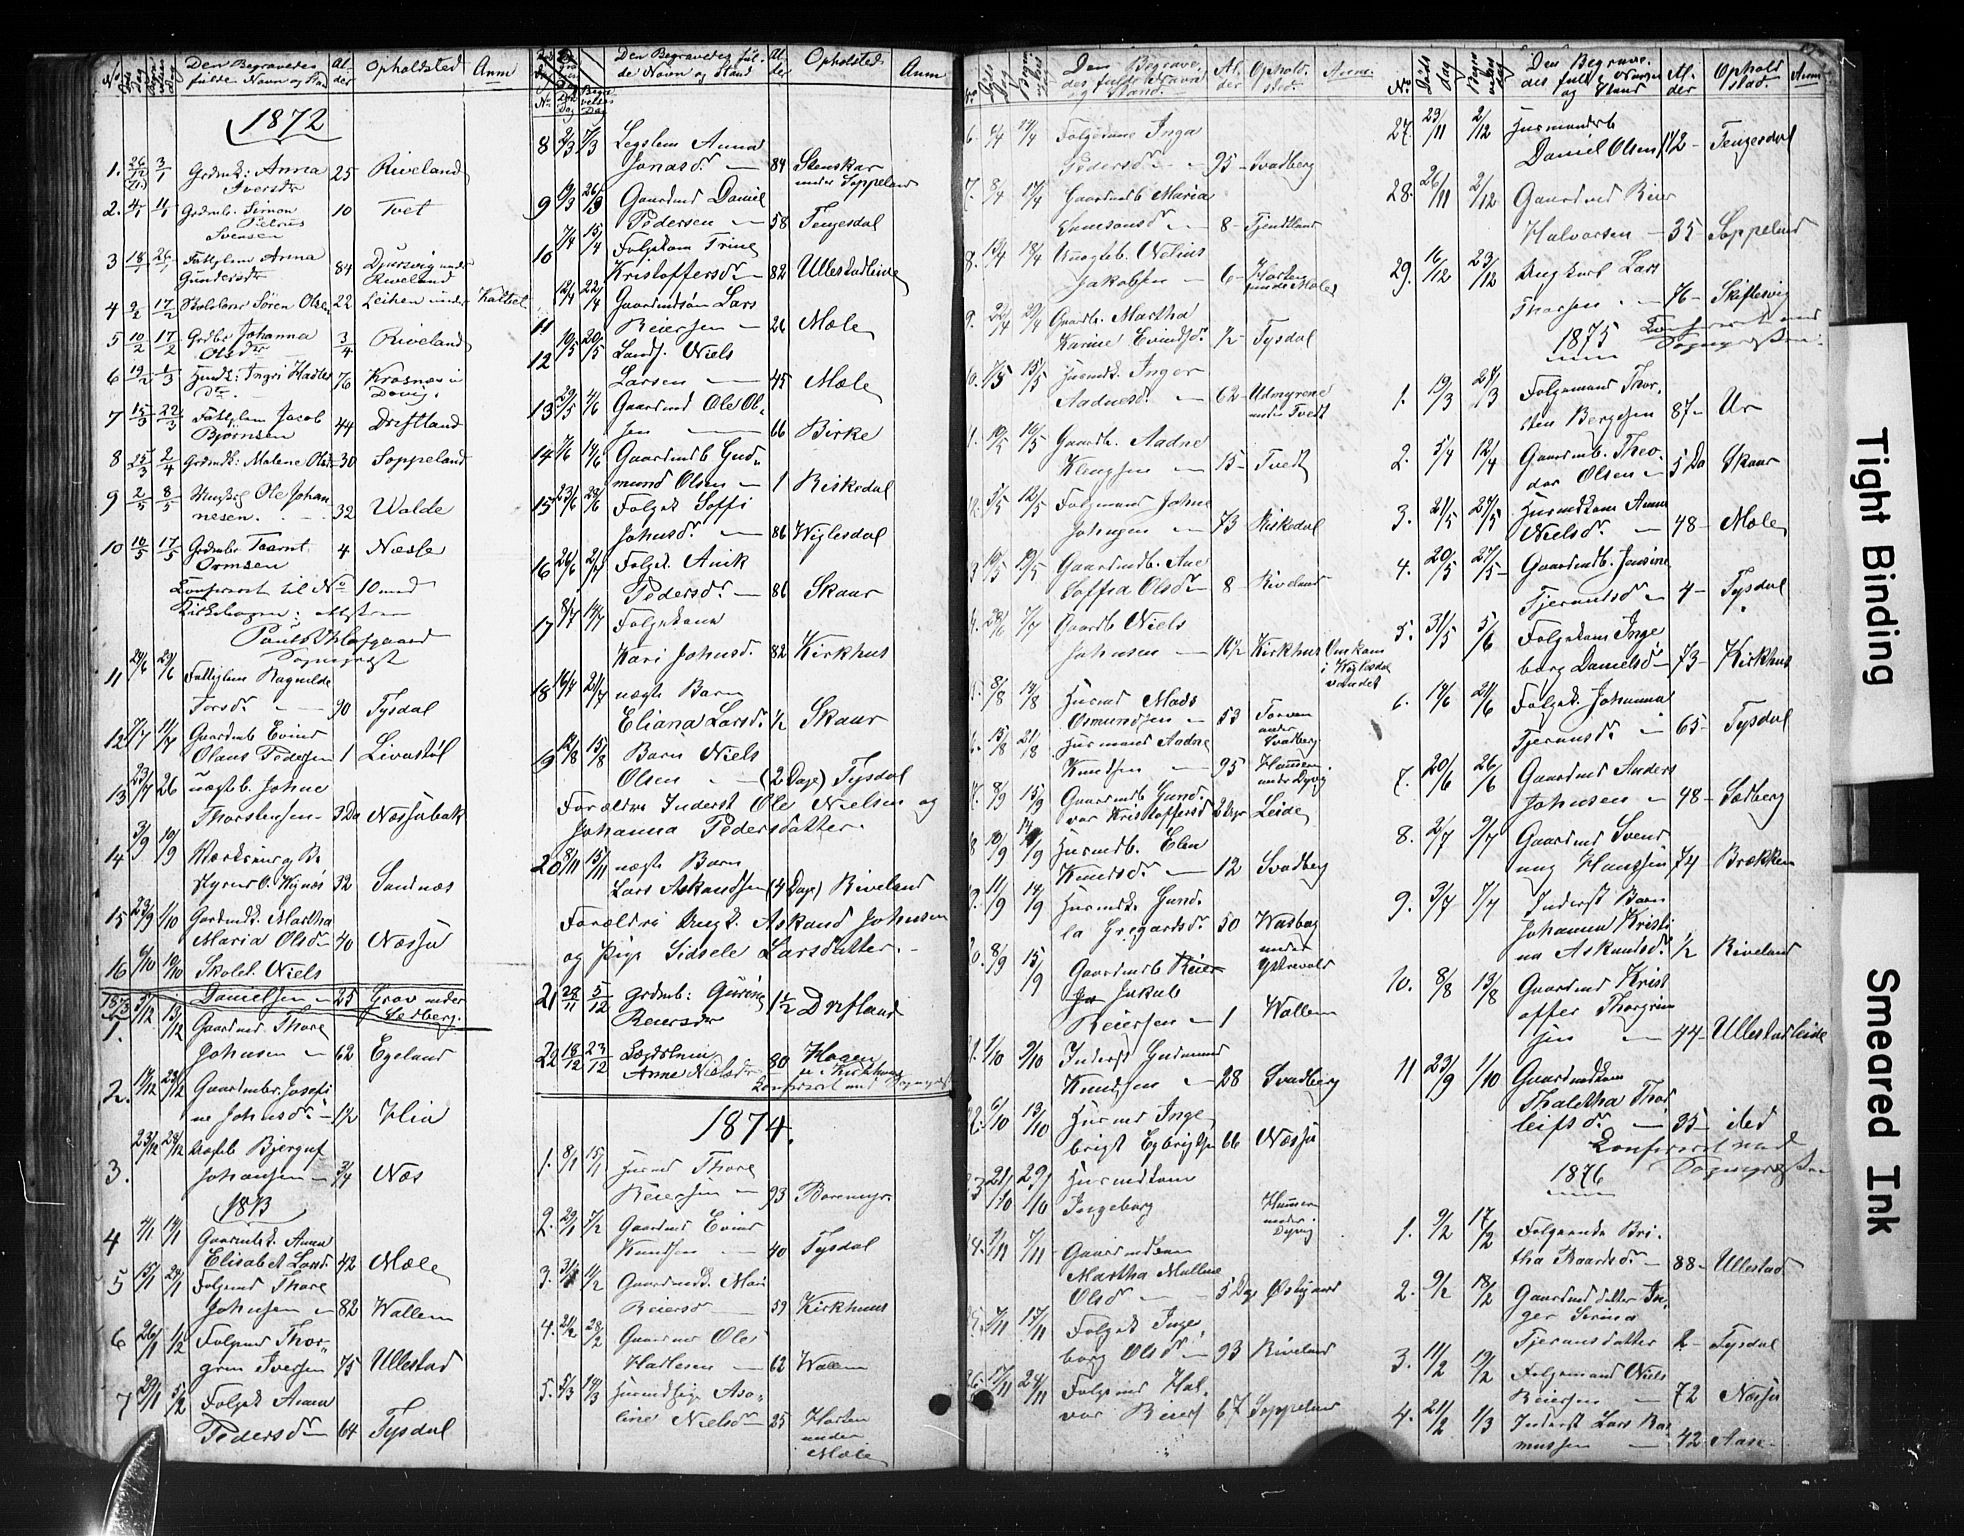 No. Døds Dag Begravelses Dag Den Begravedes fulde Navn og Stand Alder Opholdsted Anm
1872
1. 26/12 (71) 3/1 Grdmk: Anna Iversdr 25 Riveland
2. 4/1 11/1 Grdmb. Simon Petrus Svensen 10 Tvet
3 18/1 26/1 Fattiglem Anna Gundersdr 84 Dyrsvig under Riveland
4 2/2 17/2 Skolelærer Søren Olsen 22 Leihen under
5 10/2 17/2 Grdbr Johanna Olsdtr 3/4 Riveland
6 19/2 1/3 Husmk: Ingri Hadlesdtr. 76 Krosnæs i Dovig.
7 15/3 22/3 Fattiglem Jacob Bjørnsen 44 Driftland
8 25/3 2/4 Grdmk: Malene Olsd 30 Soppeland
9 2/5 8/5 Ole Johannesen. 32 Walde
10 10/5 17/5 Grdmbr Taarnt. Ormsen 4 Næsse
Conferert til No 10 med
Kirkebogen; Attst
Sogneprest
11 24/6 29/6 Fattiglem Ragnilde Torsdr 90 Tysdal
12 7/7 11/7 Gaardmb Evind Olaus Pedersen 1 Livastøl
13 23/7 26 uægteb. Johne Thorstensen 3 Da Næssebak
14 3/9 10/9 32 Sandnæs
15 23/9 1/10 Gardmdk. Martha Maria Olsdr 40 Næssø
16 9/10 19/10 Skolel. Niels Danielsen 25 Grav under Sedberg.
1873
1. 3/12 13/12 Gaardmd. Thore Johnsen 62 Egeland
2. 14/12 23/12 Gaardmbr. Josefine Johnsdr. 1/2 Hlia
3. 23/12 28/12 uægteb Bjergulf Johansen 3/4 Næs
1873
4 4/1 14/1 Gaardmdk. Anna Elisabet Lard. 42 Mæle
5 15/1 24/1 Folgemd Thore Johnsen 82 Wallem
6 26/1 1/2 Folgemd Thorgrim Iversen 75 Ullestad
7 29/1 5/2 Folgek Anna Pedersdr 64 Tysdal
No. Døds Dag Begravelses Dag Den Begravedes fulde Navn og Stand Alder Opholdsted Anm
8 2/3 7/3 Legslem Anna Jonasdr. 84 Stenskar under Soppeland
9 19/3 26/3 Gaardmd Daniel Pedersen 58 Tengesdal
10 7/4 15/4 Folgekom Trine Kristoffersdr 82 Ullestadleide
11 12/4 22/4 Gaardmdsøn Lars Reiersen 26 Mæle
12 10/5 20/5 Landf. Niels Larsen 45 Mæle
13 29/5 4/6 Gaardmd Ole Olsen 66 Birke
14 7/6 14/6 Gaardmdb Gudmund Olsen 1 Riskedal
15 23/6 28/6 Folgek Soffi Johnsdr. 86 Wiglesdal
16 26/6 2/7 Folgek. Anik Pedersdr. 86 Skaar
17 8/7 14/7 Folgekone Kari Johnsd. 82 Kirkhus
18 16/7 21/7 uægte Barn Eliana Larsd. 1/2 Skaar
19 12/8 15/8 Barn Niels Olsen (2 Dage) Tysdal
Forældre Inderst Ole Nielsen og
Johanna Pedersdatter.
20 8/11 15/11 uægte Barn Lars Askandsen (4 Dage) Riveland
Forældre Ungk. Askand Johnsen
og Pige Sidsele Larsdatter.
21 29/11 5/12 Grdmb: Gurine Reiersdr 1 1/2 Drifland
22 18/12 23/12 Anne Nielsdr 80 Hagen u. Kirkhus
Conferert med
1874.
1. 8/1 15/1 Husmd Thore Reiersen 93 Børemyr
2. 29/1 7/2 Gaardmd Evind Knudsen 40 Tysdal
3. 3/2 11/2 Gaardmdk. Mari Reiersdr 59 Kirkhus
4. 21/2 28/2 Gaardmd Ole Hadlesen 62 Walem
5. 5/3 14/3 Husmdspige Asoline Nielsdr 25 Horten under Mæle
No. Døds Dag Begravelses Dag Den Begravedes fulde Navn og Stand Alder Opholdsted. Anm.
6. 9/4 17/4 Folgekone Inga Pedersdr. 95 Svadberg
7. 8/4 17/4 Gaardmdb Maria Samsonsdr. 8 Fjendtland
8. 13/4 18/4 uægteb. Nelius Jakobsen 6 Horten under Mæle
9. 22/4 29/4 Gaardb. Martha Karine Evindsdr. 1/2 Tysdal
10. 7/5 15/5 Husmdk. Inger Aadnesdr. 62 Udmyrene under Tvedt
11. 10/5 19/5 Gaardb. Aadne Klengsen 15 Tvedt
12. 5/5 12/5 Folgemand Johne Johnsen 73 Riskedal
13. 10/5 19/5 Gaardmdb. Ane Soffia Olsdr. 8 Riveland
14. 28/6 7/7 Gaardb Niels Johnsen 10 1/2 Kirkhus Omkom i Wiglesdal vandet
15. 8/8 14/8 Husmd Mads Osmundsen 53 Torven under Svadberg
16. 15/8 21/8 Husmand Aadne Knudsen 95 Hammeren under Dyvig
17. 8/9 15/9 Gaardmdb Gundvor Kristoffersd 2 Dage Leide
18. 10/9 14/9 Husmdb. Elen Knudsdr. 12 Svadberg
19. 11/9 14/9 Husmdk. Gundla Gregardsdr. 50 Wasbag under Ystevold
20. 8/9 15/9 Gaardmdb Reier Jakob Reiersen 1 Wallem
21. 1/10 9/10 Inderst Gudmund Knudsen 28 Svadberg
22. 6/10 13/10 Husmd Ingebrigt Egbrigtsen 66 Næssø
23. 21/10 29/10 Husmdkone Ingeborg Hammeren under Dyvig
24. 3/11 7/11 Gaardmdbarn Martha Mallene Olsdr 5 Dage Østigaard
25. 7/11 17/11 Folgek Ingeborg Olsdr. 93 Riveland
26. 17/11 24/11 Folgemd Halvor Reiers. 67 Soppeland
No. Døds dag Begravelses dag Den Begravedes fulde Navn og Stand Alder Opholdsted. Anm
27. 23/11 2/12 Husmandsb Daniel Olsen 1 1/2 Tengesdal
28. 26/11 2/12 Gaardmd Reier Halvorsen 35 Soppeland
29. 16/12 23/12 Ungkarl Lars Thorsen 76 Skiftesvig
1875 Confereret med Sognepresten.
1. 19/3 27/3 Folgemand Thorsten Bergesen 87 Ur
2. 5/4 12/4 Gaardmb. Theodor Olsen 5 Da Skaar
3. 21/5 27/5 Husmdkone Anna Nielsdr. 48 Mæle
4. 20/5 27/5 Gaardmdb. Jensine Tjerandsdr 4 Tysdal
5. 31/5 5/6 Folgekone Ingeborg Danielsdr 73 Kirkhus
6. 14/6 21/6 Folgek. Johanna Tjeransdr. 65 Tysdal
7. 20/6 26/6 Gaardmd Anders Johnsen 48 Sædberg
8. 2/7 9/7 Gaardmd Svennung Hansen 74 Brækken
9. 3/7 7/7 Inderst Barn Johanna Kristina Askandsdr. 1/2 Riveland
10. 8/8 13/8 Gaardmd Kristoffer Thorgrimsen 44 Ullestadleide
11 23/9 1/10 Gaardmdkone Thaletha Thorleifsdr. 35 ibd
Confereret med
1876 Sognepresten
1. 9/2 17/2 Folgeenke Britha Baardsdr. 88 Ullestad
2. 9/2 18/2 Gaardmd datter Inger Serina Tjeransdatter 2 Tysdal
3. 11/2 19/2 Folgemand Niels Reiersen 72 Næssø
4. 21/2 1/3 Inderst Lars Rasmussen 42 Aase
Tight Binding
Smeared Ink